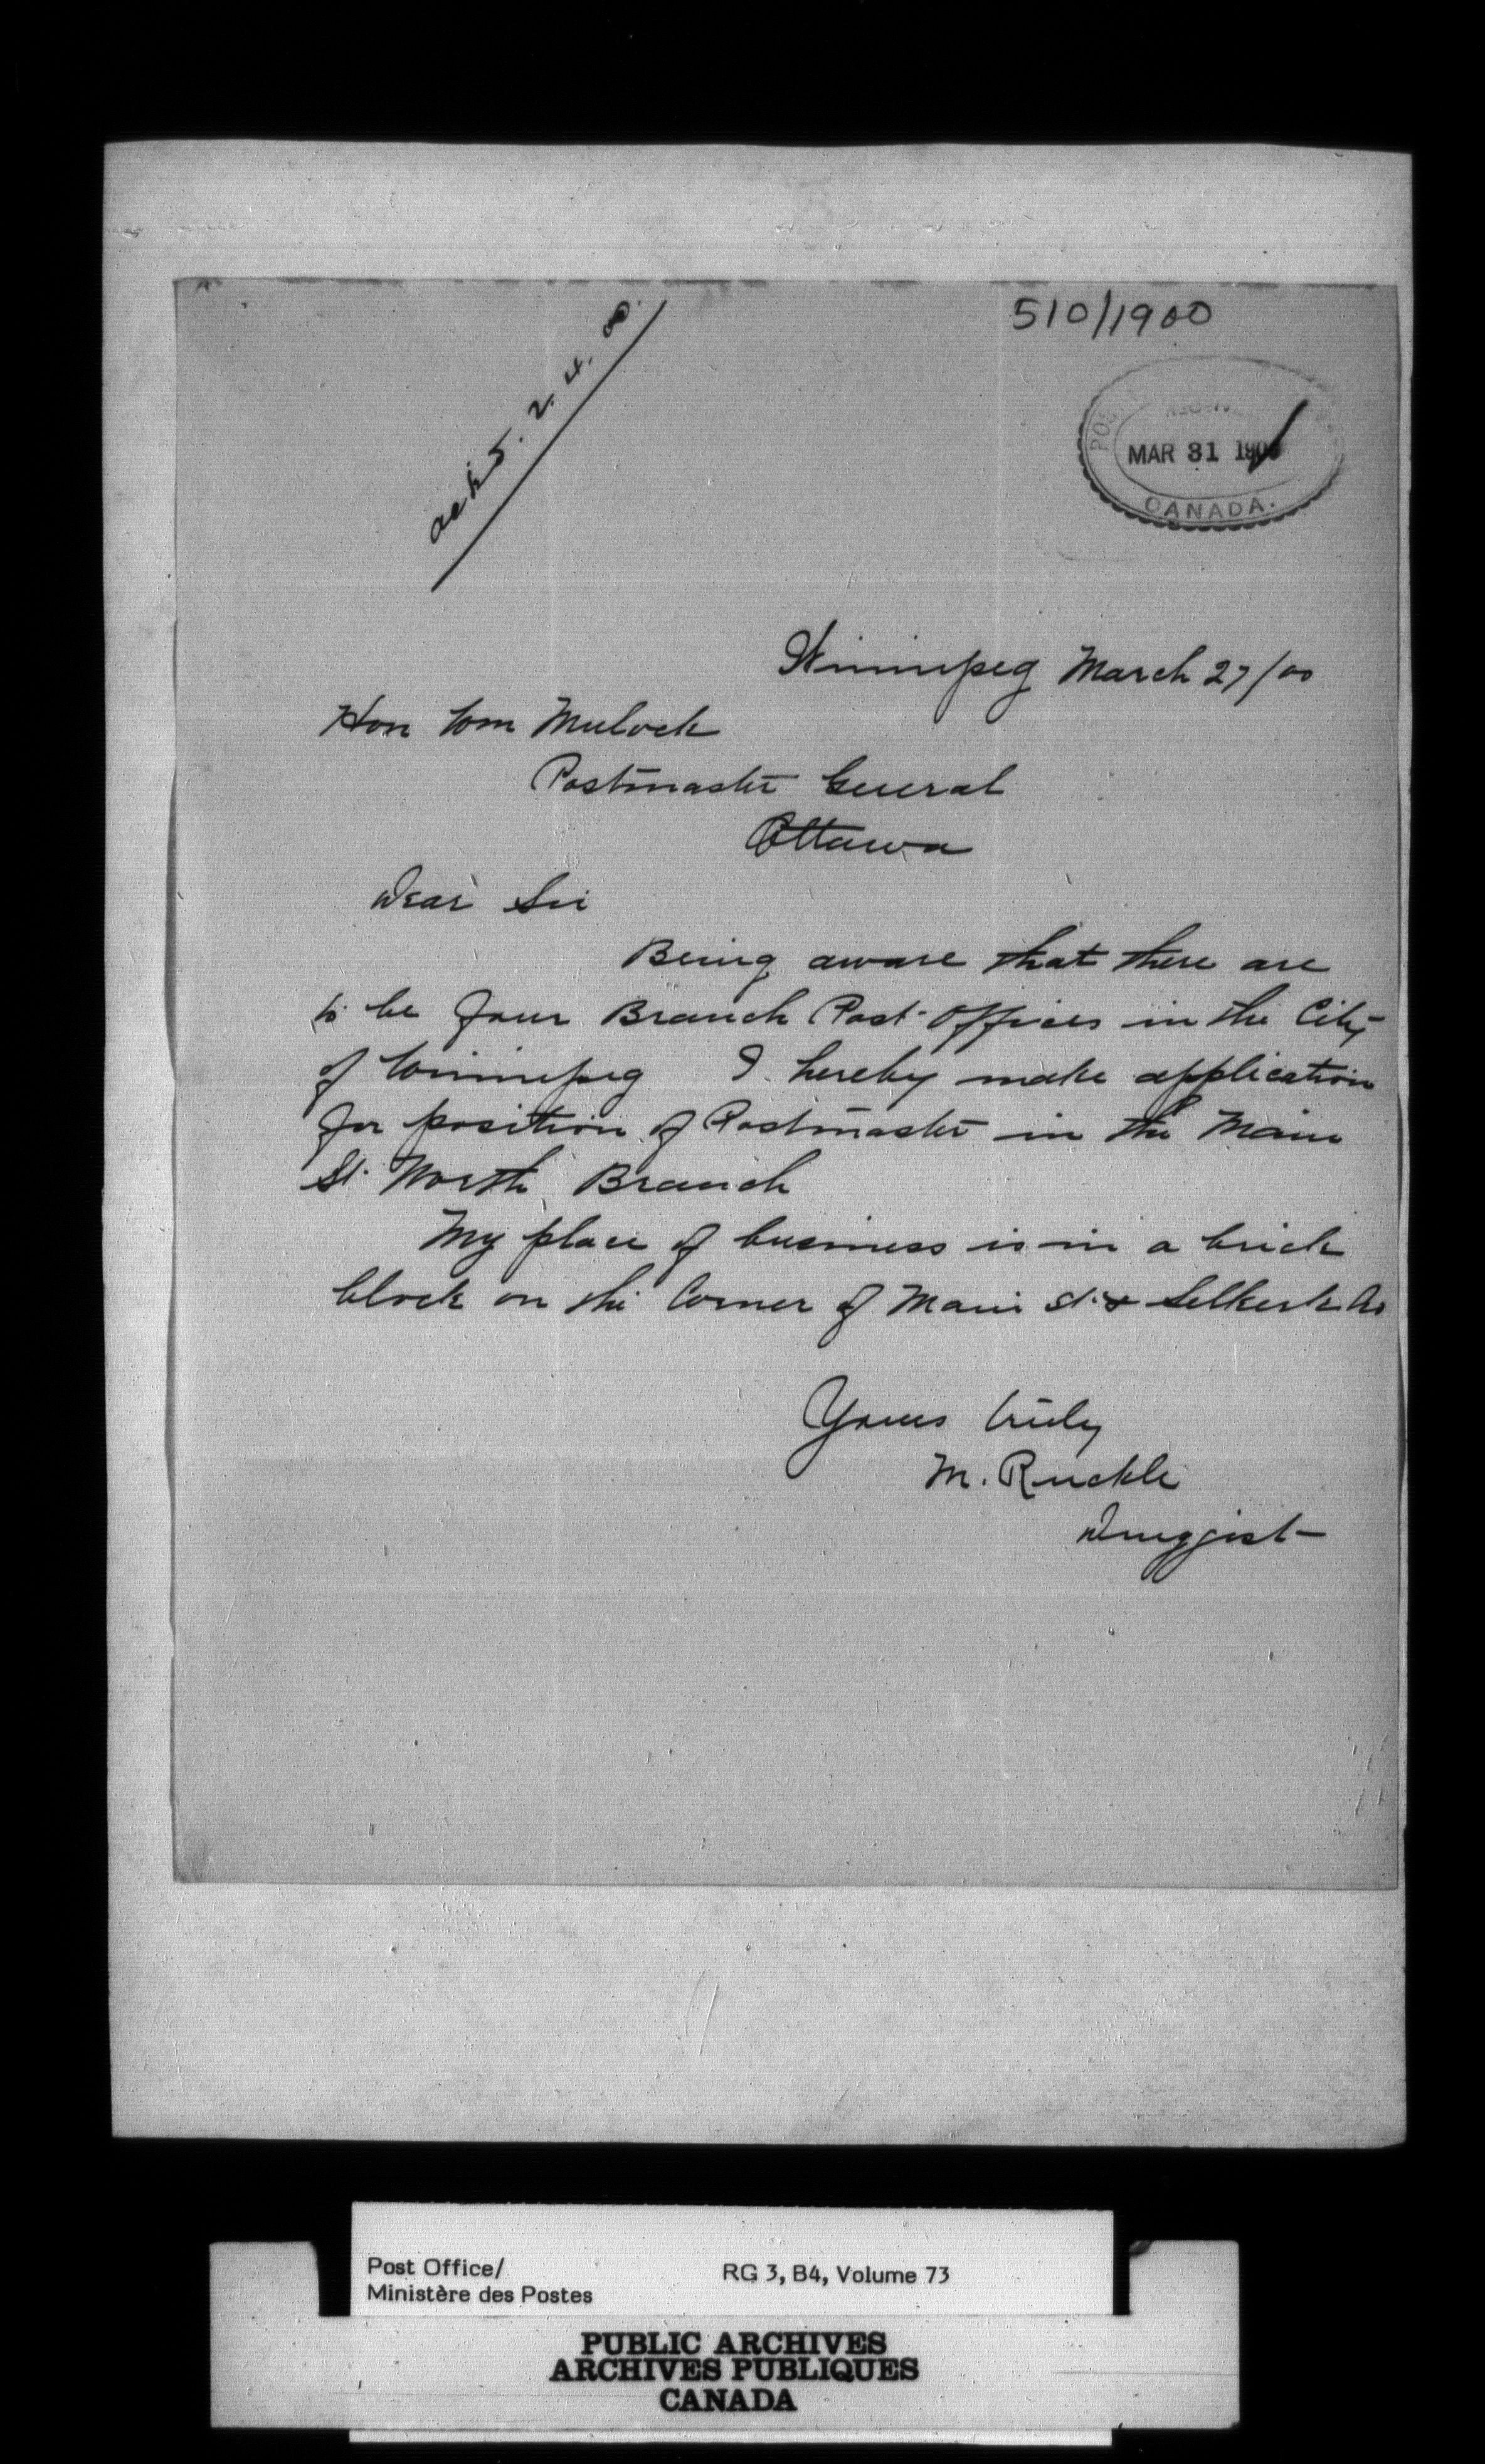 510/1900
ack'd. 2. 4. 00
MAR 31 1900
CANADA.
Winnipeg March 27/00
Hon Wm Mulock
Postmaster General
Ottawa
Dear Sir
Being aware that there are
to be four Branch Post-Offices in the City
of Winnipeg I hereby make application
for position of Postmaster in the Main
St. North Branch
My place of business is in a brick
block on the Corner of Main St. & Selkirk Av
Yours truly
M. Ruckle
Druggist
Post Office/
Ministère des Postes
RG 3, B4, Volume 73
PUBLIC ARCHIVES
ARCHIVES PUBLIQUES
CANADA